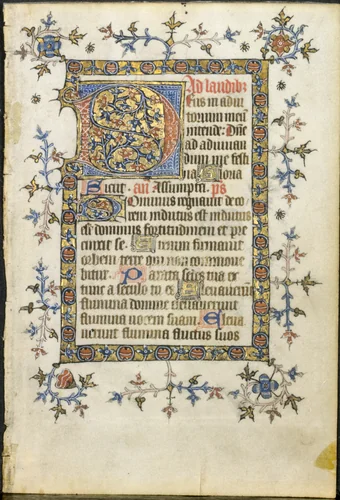 Ad laudib3
Eus in adiu
torium meū
intende. Dñe
ad adiuuan
dum me festi
na Gloria
Sicut. añ Assumpta. ps
Dominus regnauit deco
rem indutus est indutus
est dominus fortitudinem et pre
cinxit se. Etenim firmauit
orbem terre qui non commoue
bitur. Parata sedes tua ex
tunc a seculo tu es Eleuauerunt
flumina domine eleuauerunt
flumina uocem suam. Eleua
uerunt flumina fluctus suos